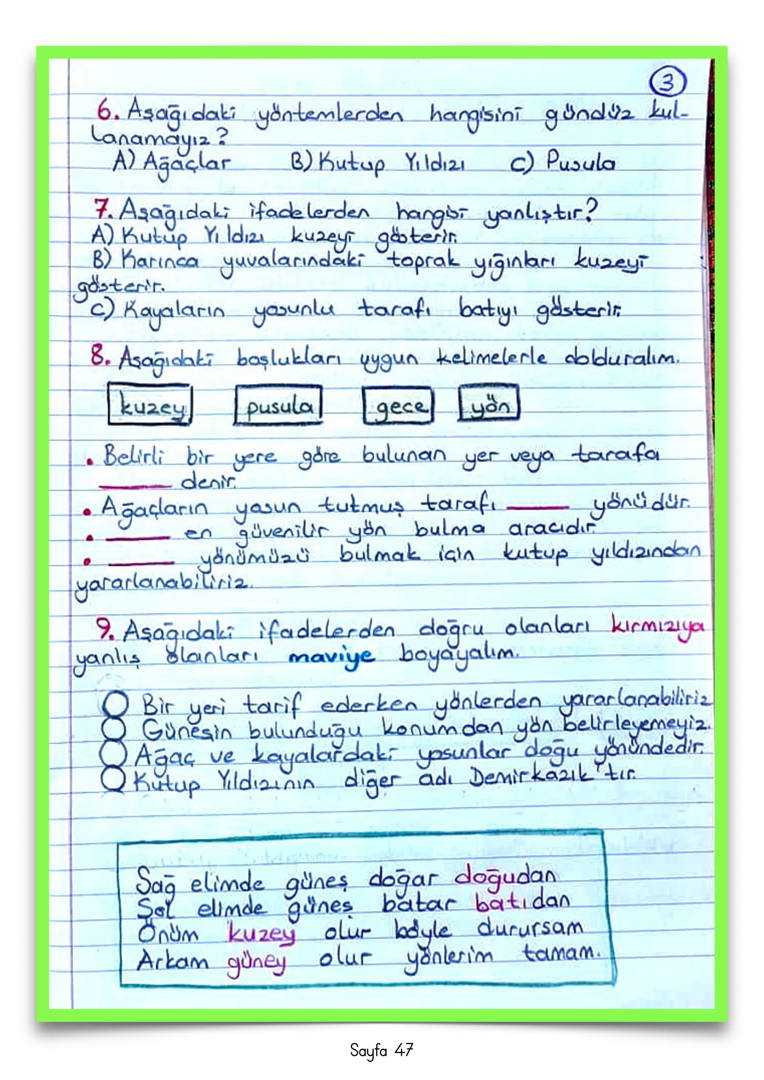 3
6. Aşağıdaki yöntemlerden hangisini gündüz kul-
lanamayız?
A) Ağaçlar B) Kutup Yıldızı C) Pusula
7. Aşağıdaki ifadelerden hangisi yanlıştır?
A) Kutup Yıldızı kuzeyi gösterir.
B) Karınca yuvalarındaki toprak yığınları kuzeyi
gösterir.
C) Kayaların yosunlu tarafı batıyı gösterir.
8. Aşağıdaki boşlukları uygun kelimelerle dolduralım.
kuzey pusula gece yön
• Belirli bir yere göre bulunan yer veya tarafa
______ denir.
• Ağaçların yosun tutmuş tarafı ______ yönüdür.
• ______ en güvenilir yön bulma aracıdır
• ______ yönümüzü bulmak için kutup yıldızından
yararlanabiliriz.
9. Aşağıdaki ifadelerden doğru olanları kırmızıya
yanlış olanları maviye boyayalım.
Bir yeri tarif ederken yönlerden yararlanabiliriz
Güneşin bulunduğu konumdan yön belirleyemeyiz.
Ağaç ve kayalardaki yosunlar doğu yönündedir.
Kutup Yıldızının diğer adı Demirkazık'tır.
Sağ elimde güneş doğar doğudan
Sol elimde güneş batar batıdan
Önüm kuzey olur böyle durursam
Arkam güney olur yönlerim tamam.
Sayfa 47